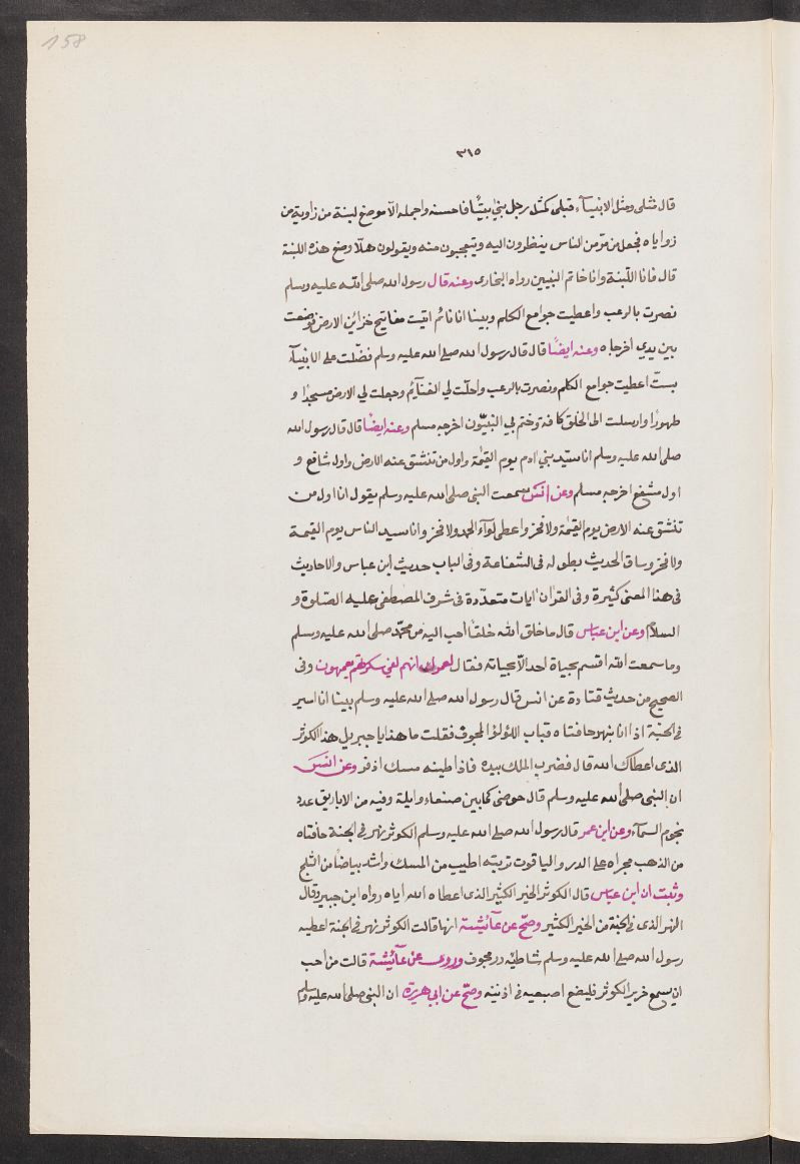 158
٣١٥
قال مثلى ومثل الانبيآء قبلى كمثل رجل بنى بيتًا فاحسنه واجمله الا موضع لبنة من زاوية من
زواياه فجعل من مرّ من الناس ينظرون اليه ويتعجبون منه ويقولون هلّا وضع هذه اللبنة
قال فانا اللّبنة وانا خاتم النبيين رواه البخارى وعنه قال رسول الله صلى الله عليه وسلم
نصرت بالرعب واعطيت جوامع الكلم وبينا انا نائم اتيت مفاتيح خزائن الارض فوضعت
بين يدي اخرجاه وعنه ايضًا قال قال رسول الله صلى الله عليه وسلم فضّلت على الانبيآء
بستّ اعطيت جوامع الكلم ونصرت بالرعب واحلّت لي الغنآئم وجعلت لي الارض مسجدًا و
طهورًا وارسلت الى الخلق كافة وختم بي النبيّون اخرجه مسلم وعنه ايضًا قال قال رسول الله
صلى الله عليه وسلم انا سيّد بني ادم يوم القيمة واول من تنشق عنه الارض واول شافع و
اول مشفع اخرجه مسلم وعن انس سمعت النبى صلى الله عليه وسلم يقول انا اول من
تنشق عنه الارض يوم القيمة ولا فخر واعطى لوآء الحمد ولا فخر وانا سيد الناس يوم القيمة
ولا فخر وساق الحديث بطوله فى الشفاعة وفى الباب حديث ابن عباس والاحاديث
فى هذا المعنى كثيرة وفى القرآن ايات متعدّدة فى شرف المصطفى عليه الصّلوة و
السلام وعن ابن عبّاس قال ما خلق الله خلقا احب اليه من محمّد صلى الله عليه وسلم
وما سمعت الله اقسم بحياة احد الّا بحياته فقال لعمرك انهم لفى سكرتهم يعمهون وفى
الصحيح من حديث قتادة عن انس قال رسول الله صلى الله عليه وسلم بينا انا اسير
فى الجنّة اذا انا بنهر حافتاه قباب اللؤلؤ المجوف فقلت ما هذا يا جبريل هذا الكوثر
الذى اعطاك الله قال فضرب الملك بيده فاذا طينه مسك اذفر وعن انس
ان النبى صلى الله عليه وسلم قال حوضى كما بين صنعاء وايلة وفيه من الاباريق عدد
نجوم السمآء وعن ابن عمر قال رسول الله صلى الله عليه وسلم الكوثر نهر فى الجنة حافتاه
من الذهب مجراه على الدر والياقوت تربته اطيب من المسك واشد بياضًا من الثلج
وثبت ان ابن عبّاس قال الكوثر الخير الكثير الذى اعطاه الله اياه رواه ابن جبير وقال
النهر الذى فى الجنة من الخير الكثير وصحّ عن عآئيشة انها قالت الكوثر نهر فى الجنة اعطيه
رسول الله صلى الله عليه وسلم شاطئه در مجوف وروى عن عآئيشة قالت من احب
ان يسمع خرير الكوثر فليضع اصبعيه فى اذنيه وصحّ عن ابى هريرة ان النبى صلى الله عليه وسلم